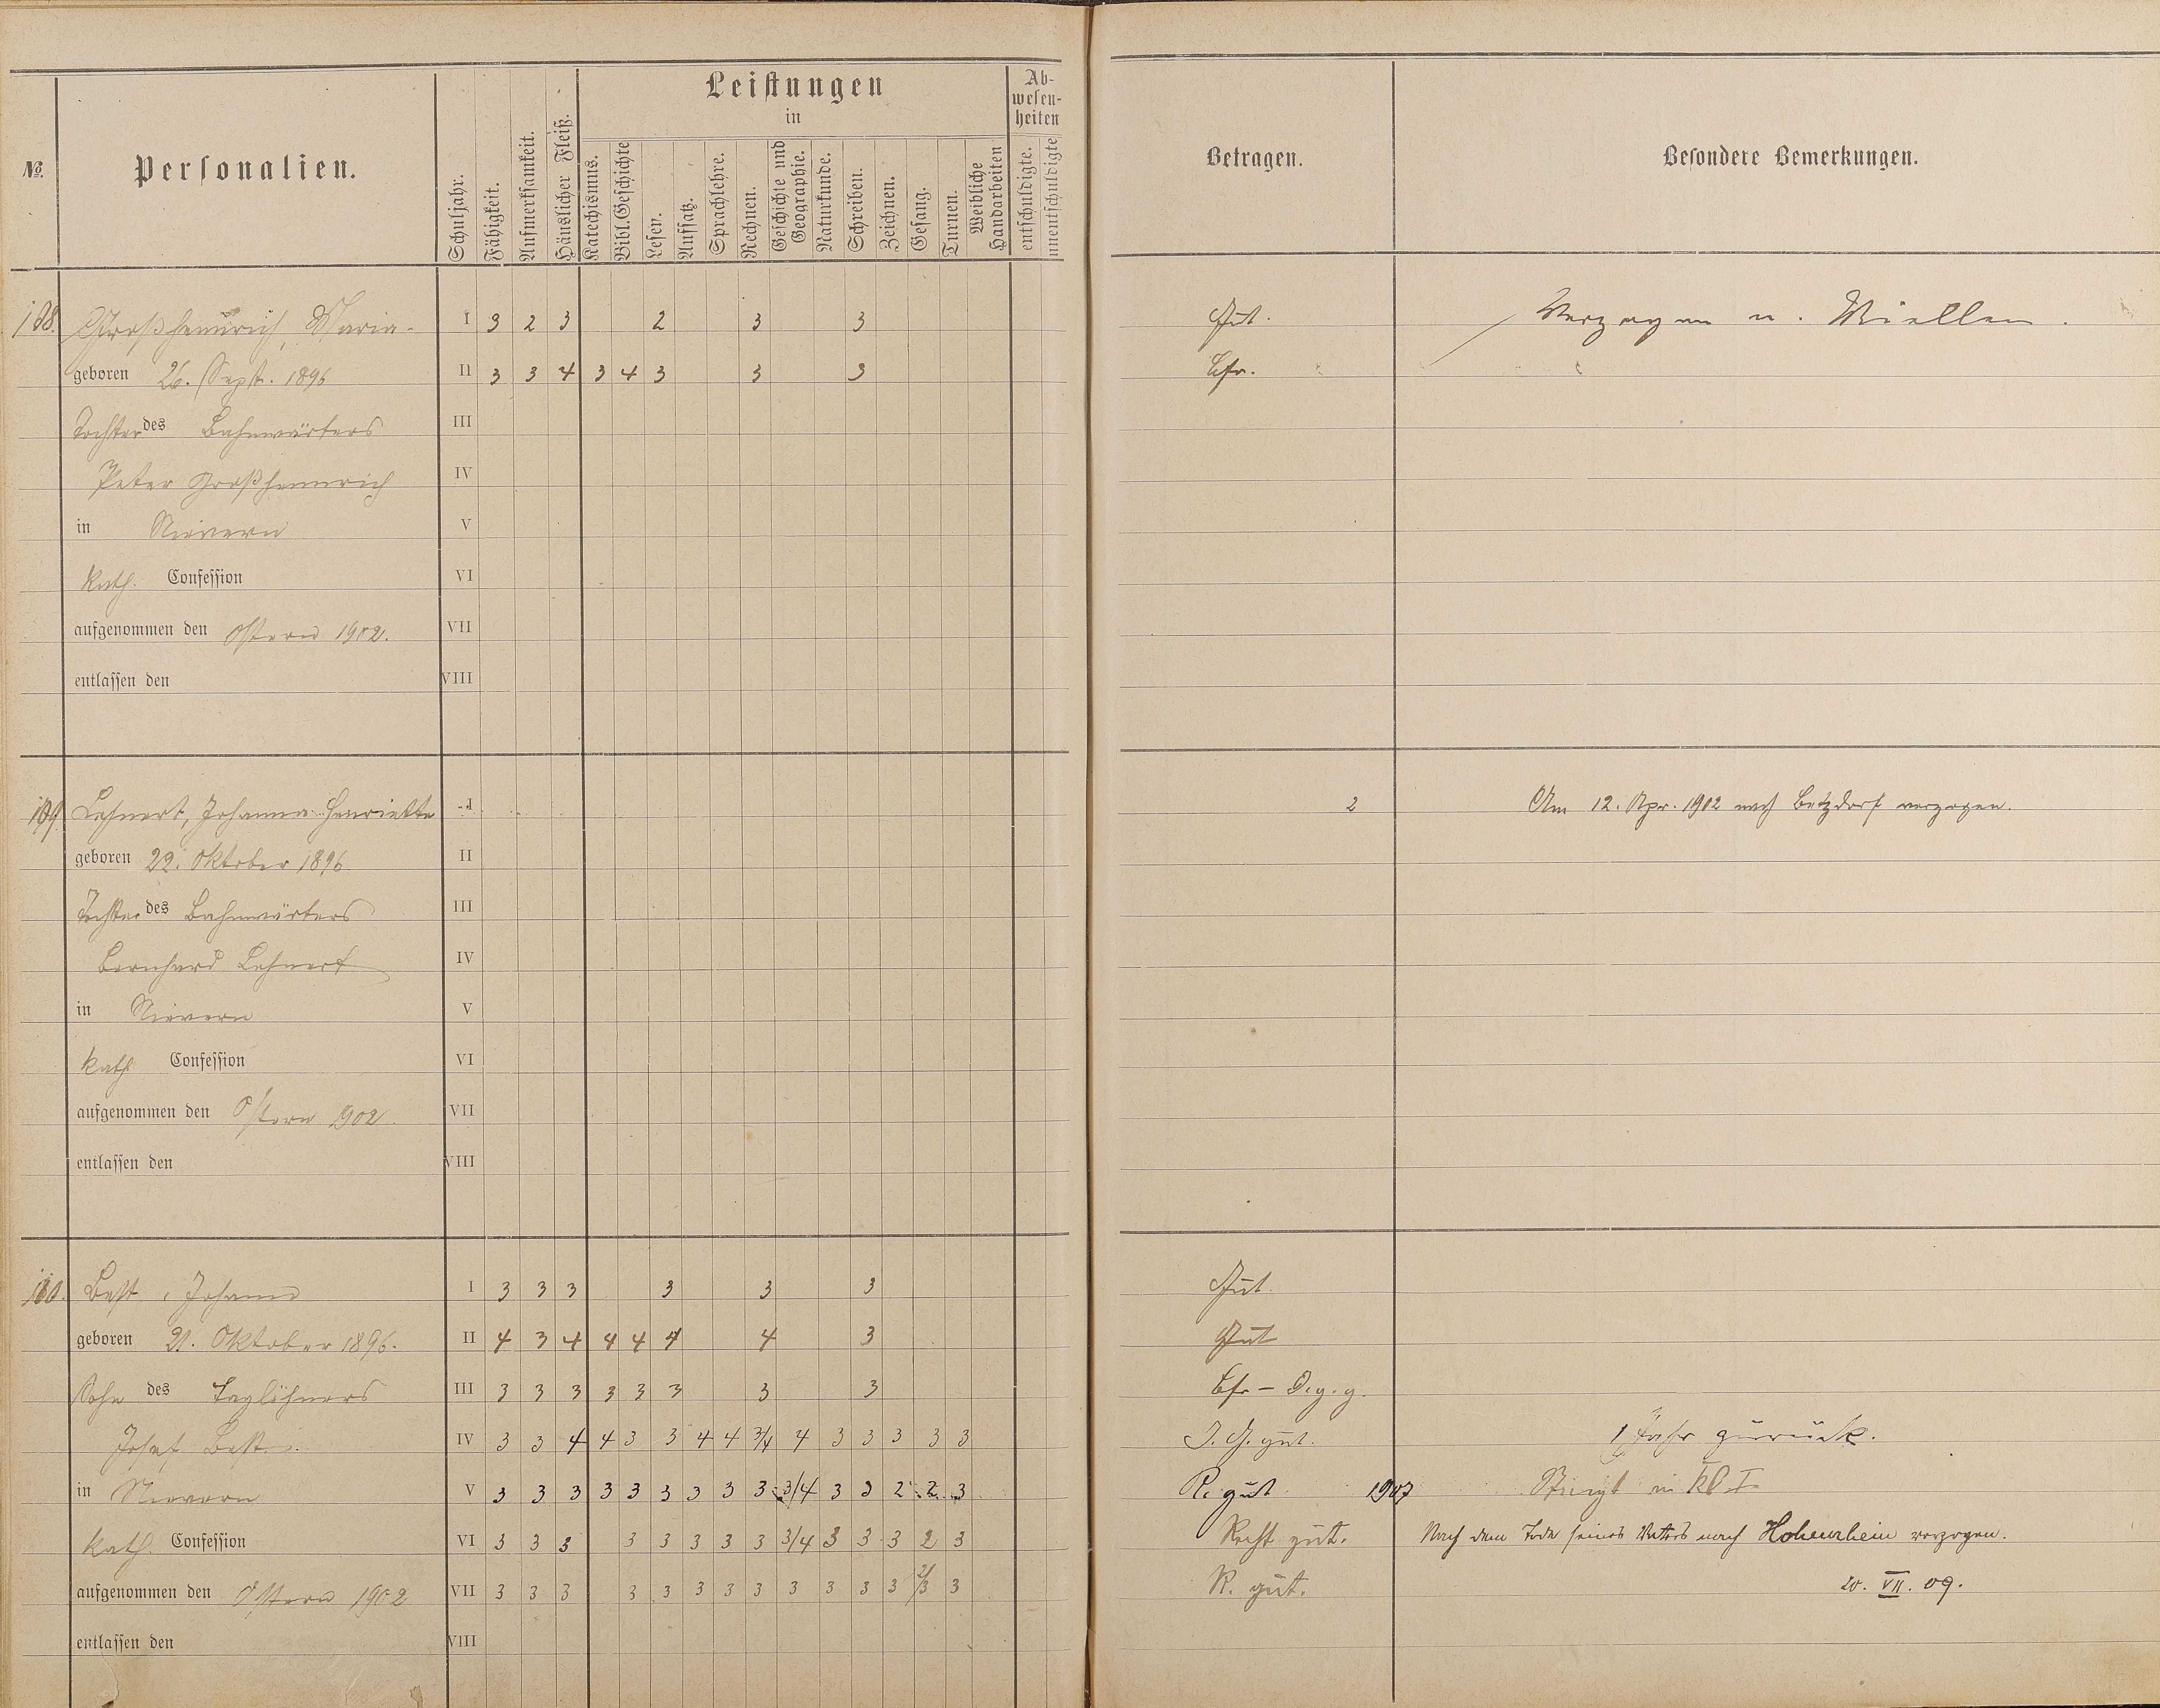 Leistungen
in
Ab-
wesen-
heiten
№.
Personalien.
Schuljahr.
Fähigkeit.
Aufmerksamkeit.
Häuslicher Fleiß.
Katechismus.
Bibl. Geschichte
Lesen.
Aufsatz.
Sprachlehre.
Rechnen.
Geschichte und Geographie.
Naturkunde.
Schreiben.
Zeichnen.
Gesang.
Turnen.
Weibliche Handarbeiten
entschuldigte.
unentschuldigte
Betragen.
Besondere Bemerkungen.
108. Großhennrich, Maria. I 3 2 3 2 3 3 Gut. Verzogen n. Miellen.
geboren 26. Sept. 1896 II 3 3 4 3 4 3 3 3 Bfr.
Tochter des Bahnwärters III
Peter Großhennrich IV
in Nievern V
kath. Confession VI
aufgenommen den Ostern 1902. VII
entlassen den VIII
109 Lehnert, Johanna Henriette I 2 Am 12. Apr. 1902 nach Betzdorf verzogen.
geboren 22. Oktober 1896 II
Tochter des Bahnwärters III
Bernhard Lehnert IV
in Nievern V
kath Confession VI
aufgenommen den Ostern 1902. VII
entlassen den VIII
110. Best, Johann I 3 3 3 3 3 3 Gut.
geboren 21. Oktober 1896. II 4 3 4 4 4 4 4 3 Gut
Sohn des Taglöhners III 3 3 3 3 3 3 3 3 Bfr –
Josef Best. IV 3 3 4 4 3 3 4 4 3/4 4 3 3 3 3 3 gut. 1 Jahr zurück.
in Nievern V 3 3 3 3 3 3 3 3 3 3/4 3 3 2 2 3 R. gut 1907 Steigt in Kl I
kath. Confession VI 3 3 3 3 3 3 3 3 3/4 3 3 3 2 3 Recht gut. Nach dem Tode seines Vaters nach Hohenrhein verzogen.
aufgenommen den Ostern 1902 VII 3 3 3 3 3 3 3 3 3 3 3 3 2/3 3 R. gut. 20. VII. 09.
entlassen den VIII